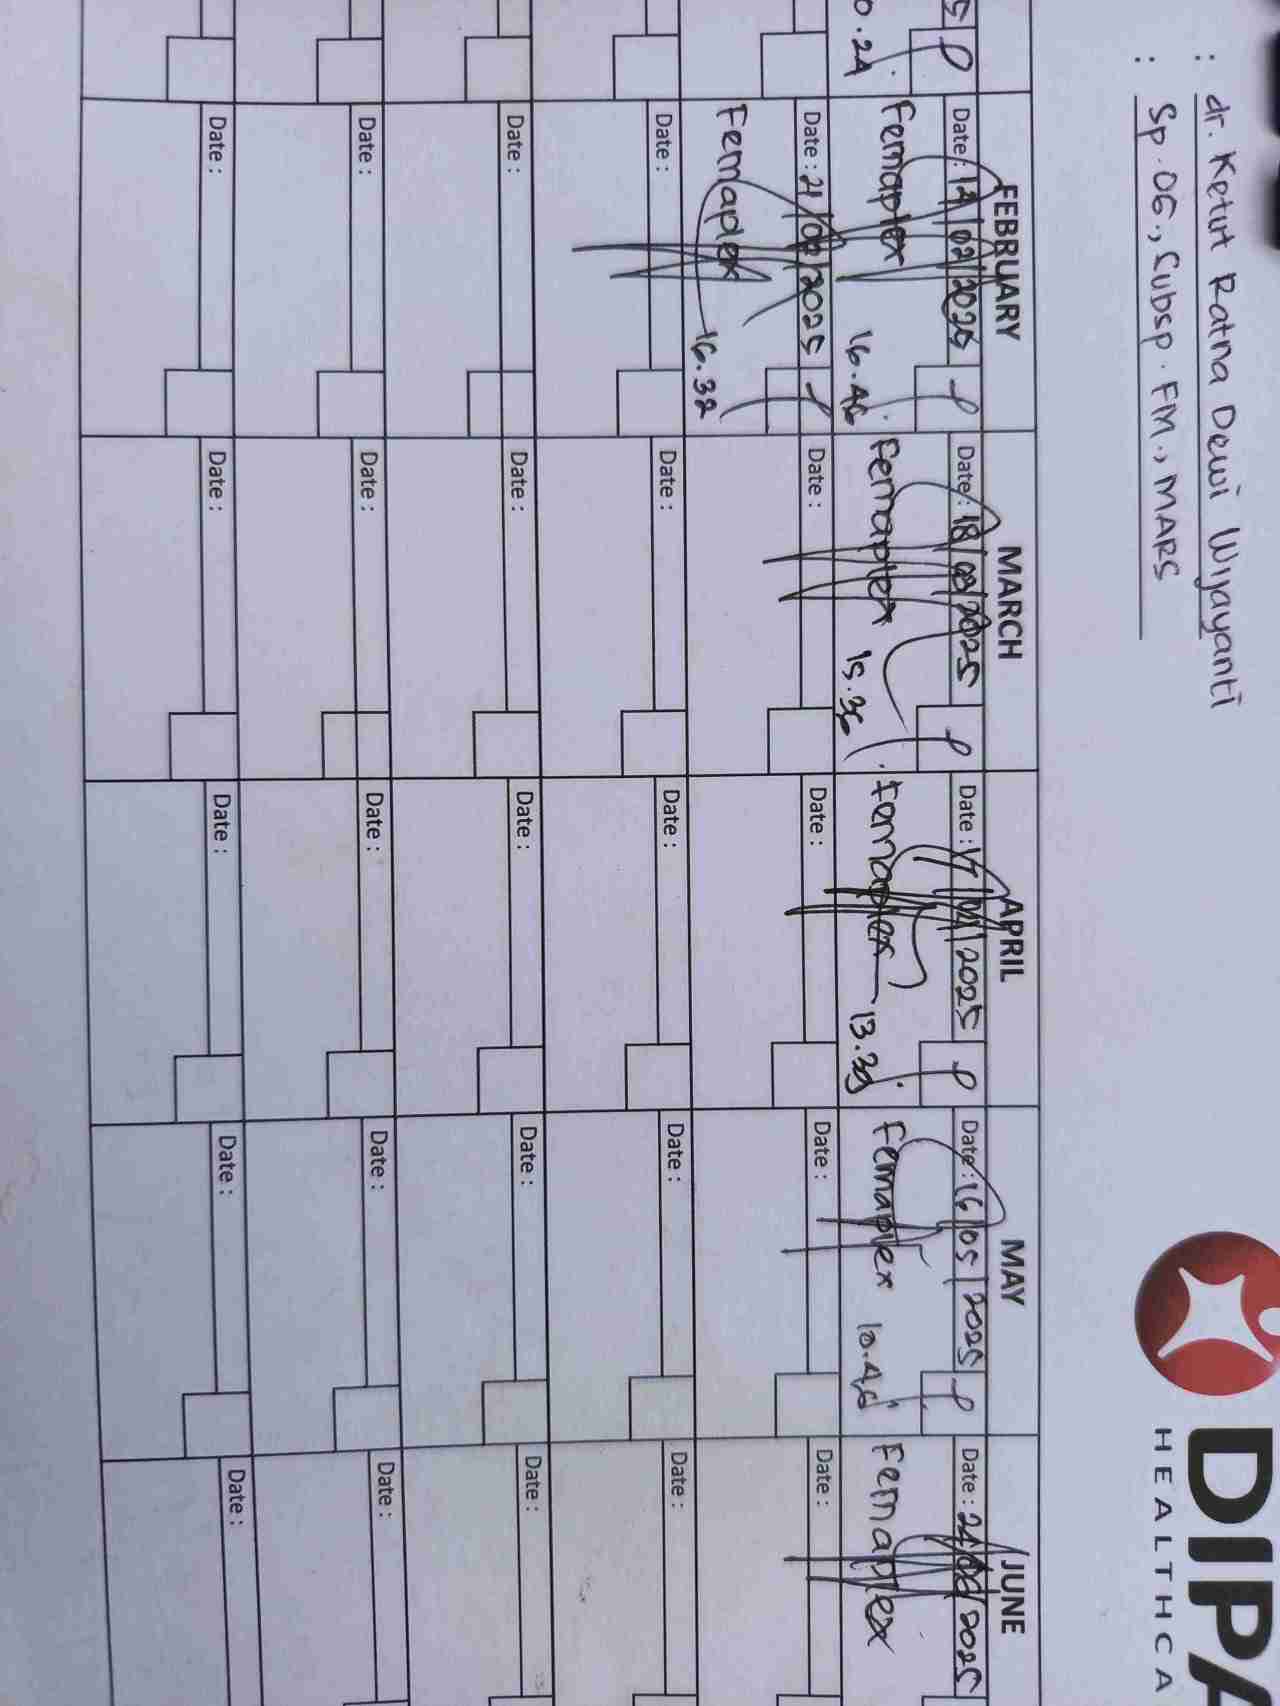 : dr. Ketut Ratna Dewi Wijayanti
: Sp.OG., Subsp. FM., MARS
DIPA
HEALTHCA
FEBRUARY MARCH APRIL MAY JUNE
5 Date : 12/02/2025 Date : 18/03/2025 Date : 17/04/2025 Date : 16/05/2025 Date : 24/06/2025
Femaplex Femaplex Femaplex Femaplex Femaplex
0.24 16.46 15.36 13.39 10.46
Date : 21/02/2025 Date : Date : Date : Date :
Femaplex
16.32
Date : Date : Date : Date : Date :
Date : Date : Date : Date : Date :
Date : Date : Date : Date : Date :
Date : Date : Date : Date : Date :